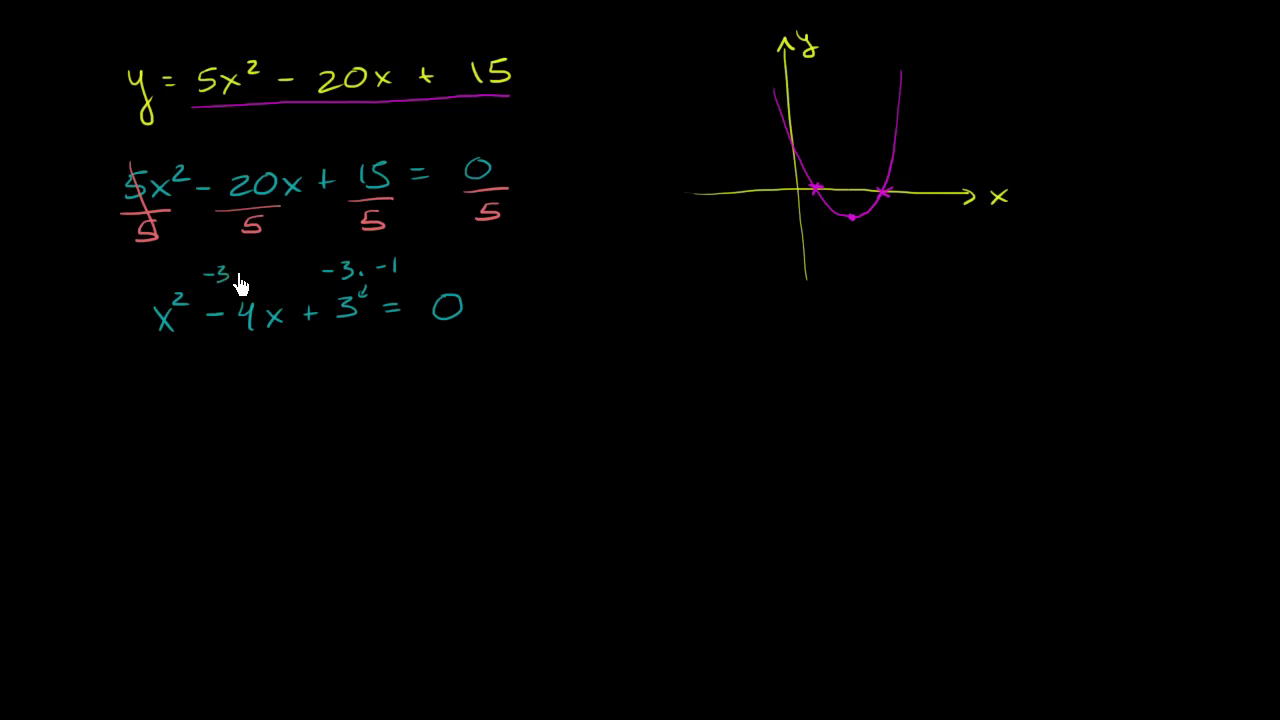 y = 5x² - 20x + 15
5x² - 20x + 15 = 0
5 5 5 5
-3 -3 · -1
x² - 4x + 3 = 0
y
x